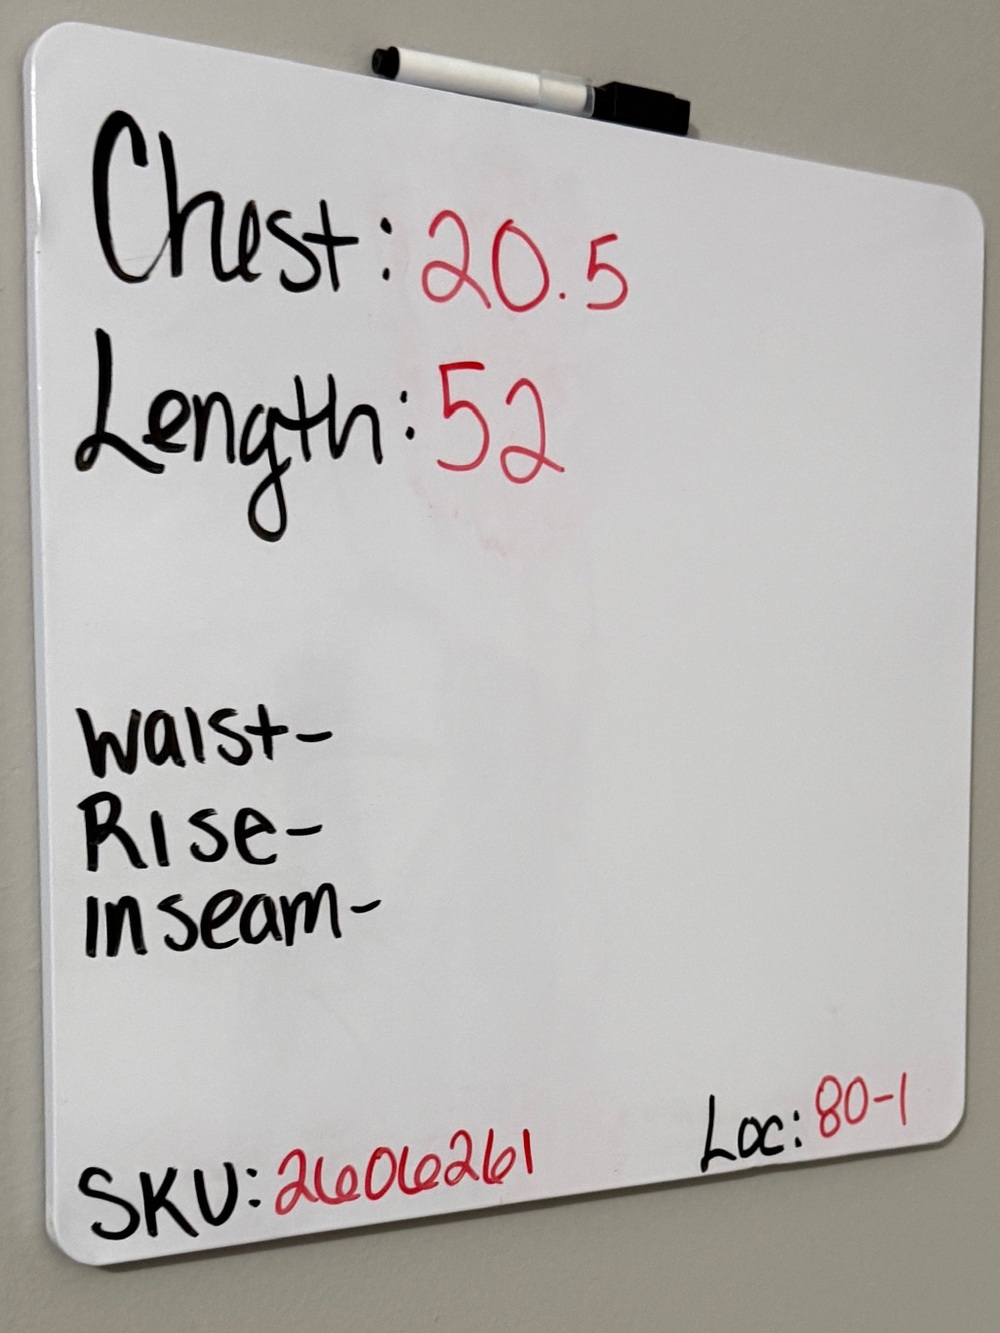 Chest: 20.5
Length: 52
Waist-
Rise-
inseam-
Loc: 80-1
SKU: 2606261